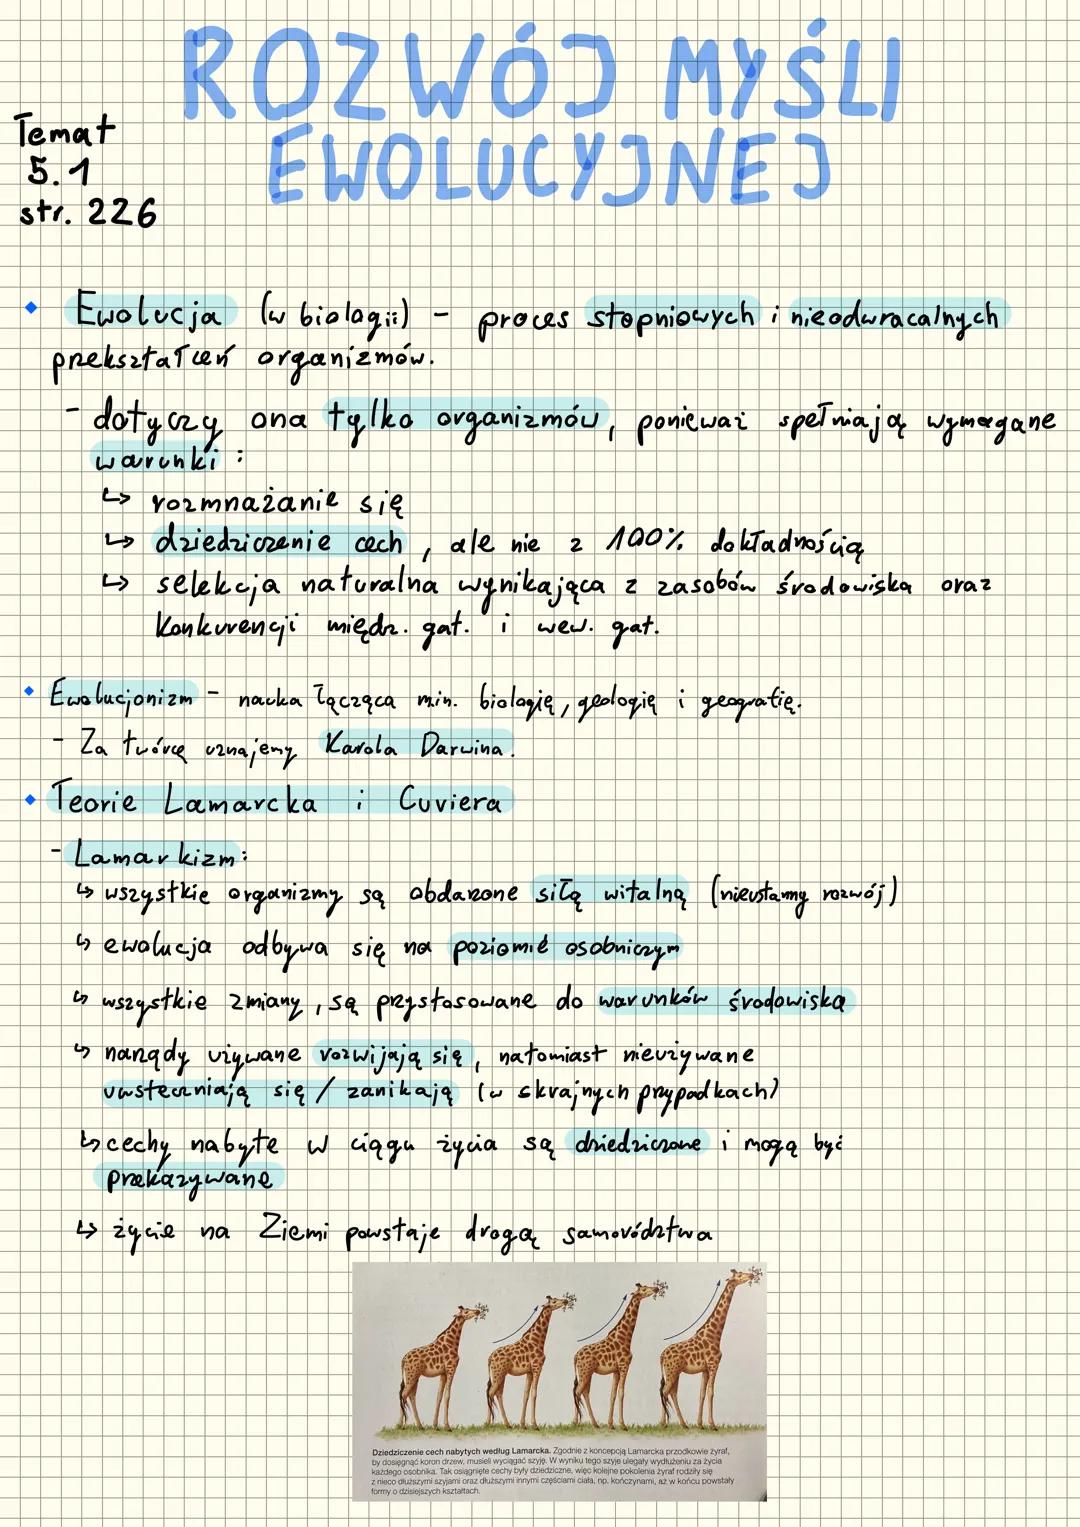 ROZWÓJ MYŚLI
EWOLUCYJNEJ
Temat
5.1
str. 226
Ewolucja (w biologii) - proces stopniowych i nieodwracalnych
przekształceń organizmów.
- dotyczy ona tylko organizmów, ponieważ spełniają wymagane
warunki :
↳ rozmnażanie się
↳ dziedziczenie cech, ale nie z 100% dokładnością
↳ selekcja naturalna wynikająca z zasobów środowiska oraz
konkurencji międz. gat. i wew. gat.
Ewolucjonizm - nauka łącząca min. biologię, geologię i geografię.
- Za twórcę uznajemy Karola Darwina.
Teorie Lamarcka i Cuviera
- Lamarkizm:
↳ wszystkie organizmy są obdarzone siłą witalną (nieustanny rozwój)
↳ ewolucja odbywa się na poziomie osobniczym
↳ wszystkie zmiany, są przystosowane do warunków środowiska
↳ narządy używane rozwijają się, natomiast nieużywane
uwsteczniają się / zanikają (w skrajnych przypadkach)
↳ cechy nabyte w ciągu życia są dziedziczone i mogą być
przekazywane
↳ życie na Ziemi powstaje drogą samorództwa
Dziedziczenie cech nabytych według Lamarcka. Zgodnie z koncepcją Lamarcka przodkowie żyraf,
by dosięgnąć koron drzew, musieli wyciągać szyję. W wyniku tego szyje ulegały wydłużeniu za życia
każdego osobnika. Tak osiągnięte cechy były dziedziczne, więc kolejne pokolenia żyraf rodziły się
z nieco dłuższymi szyjami oraz dłuższymi innymi częściami ciała, np. kończynami, aż w końcu powstały
formy o dzisiejszych kształtach.